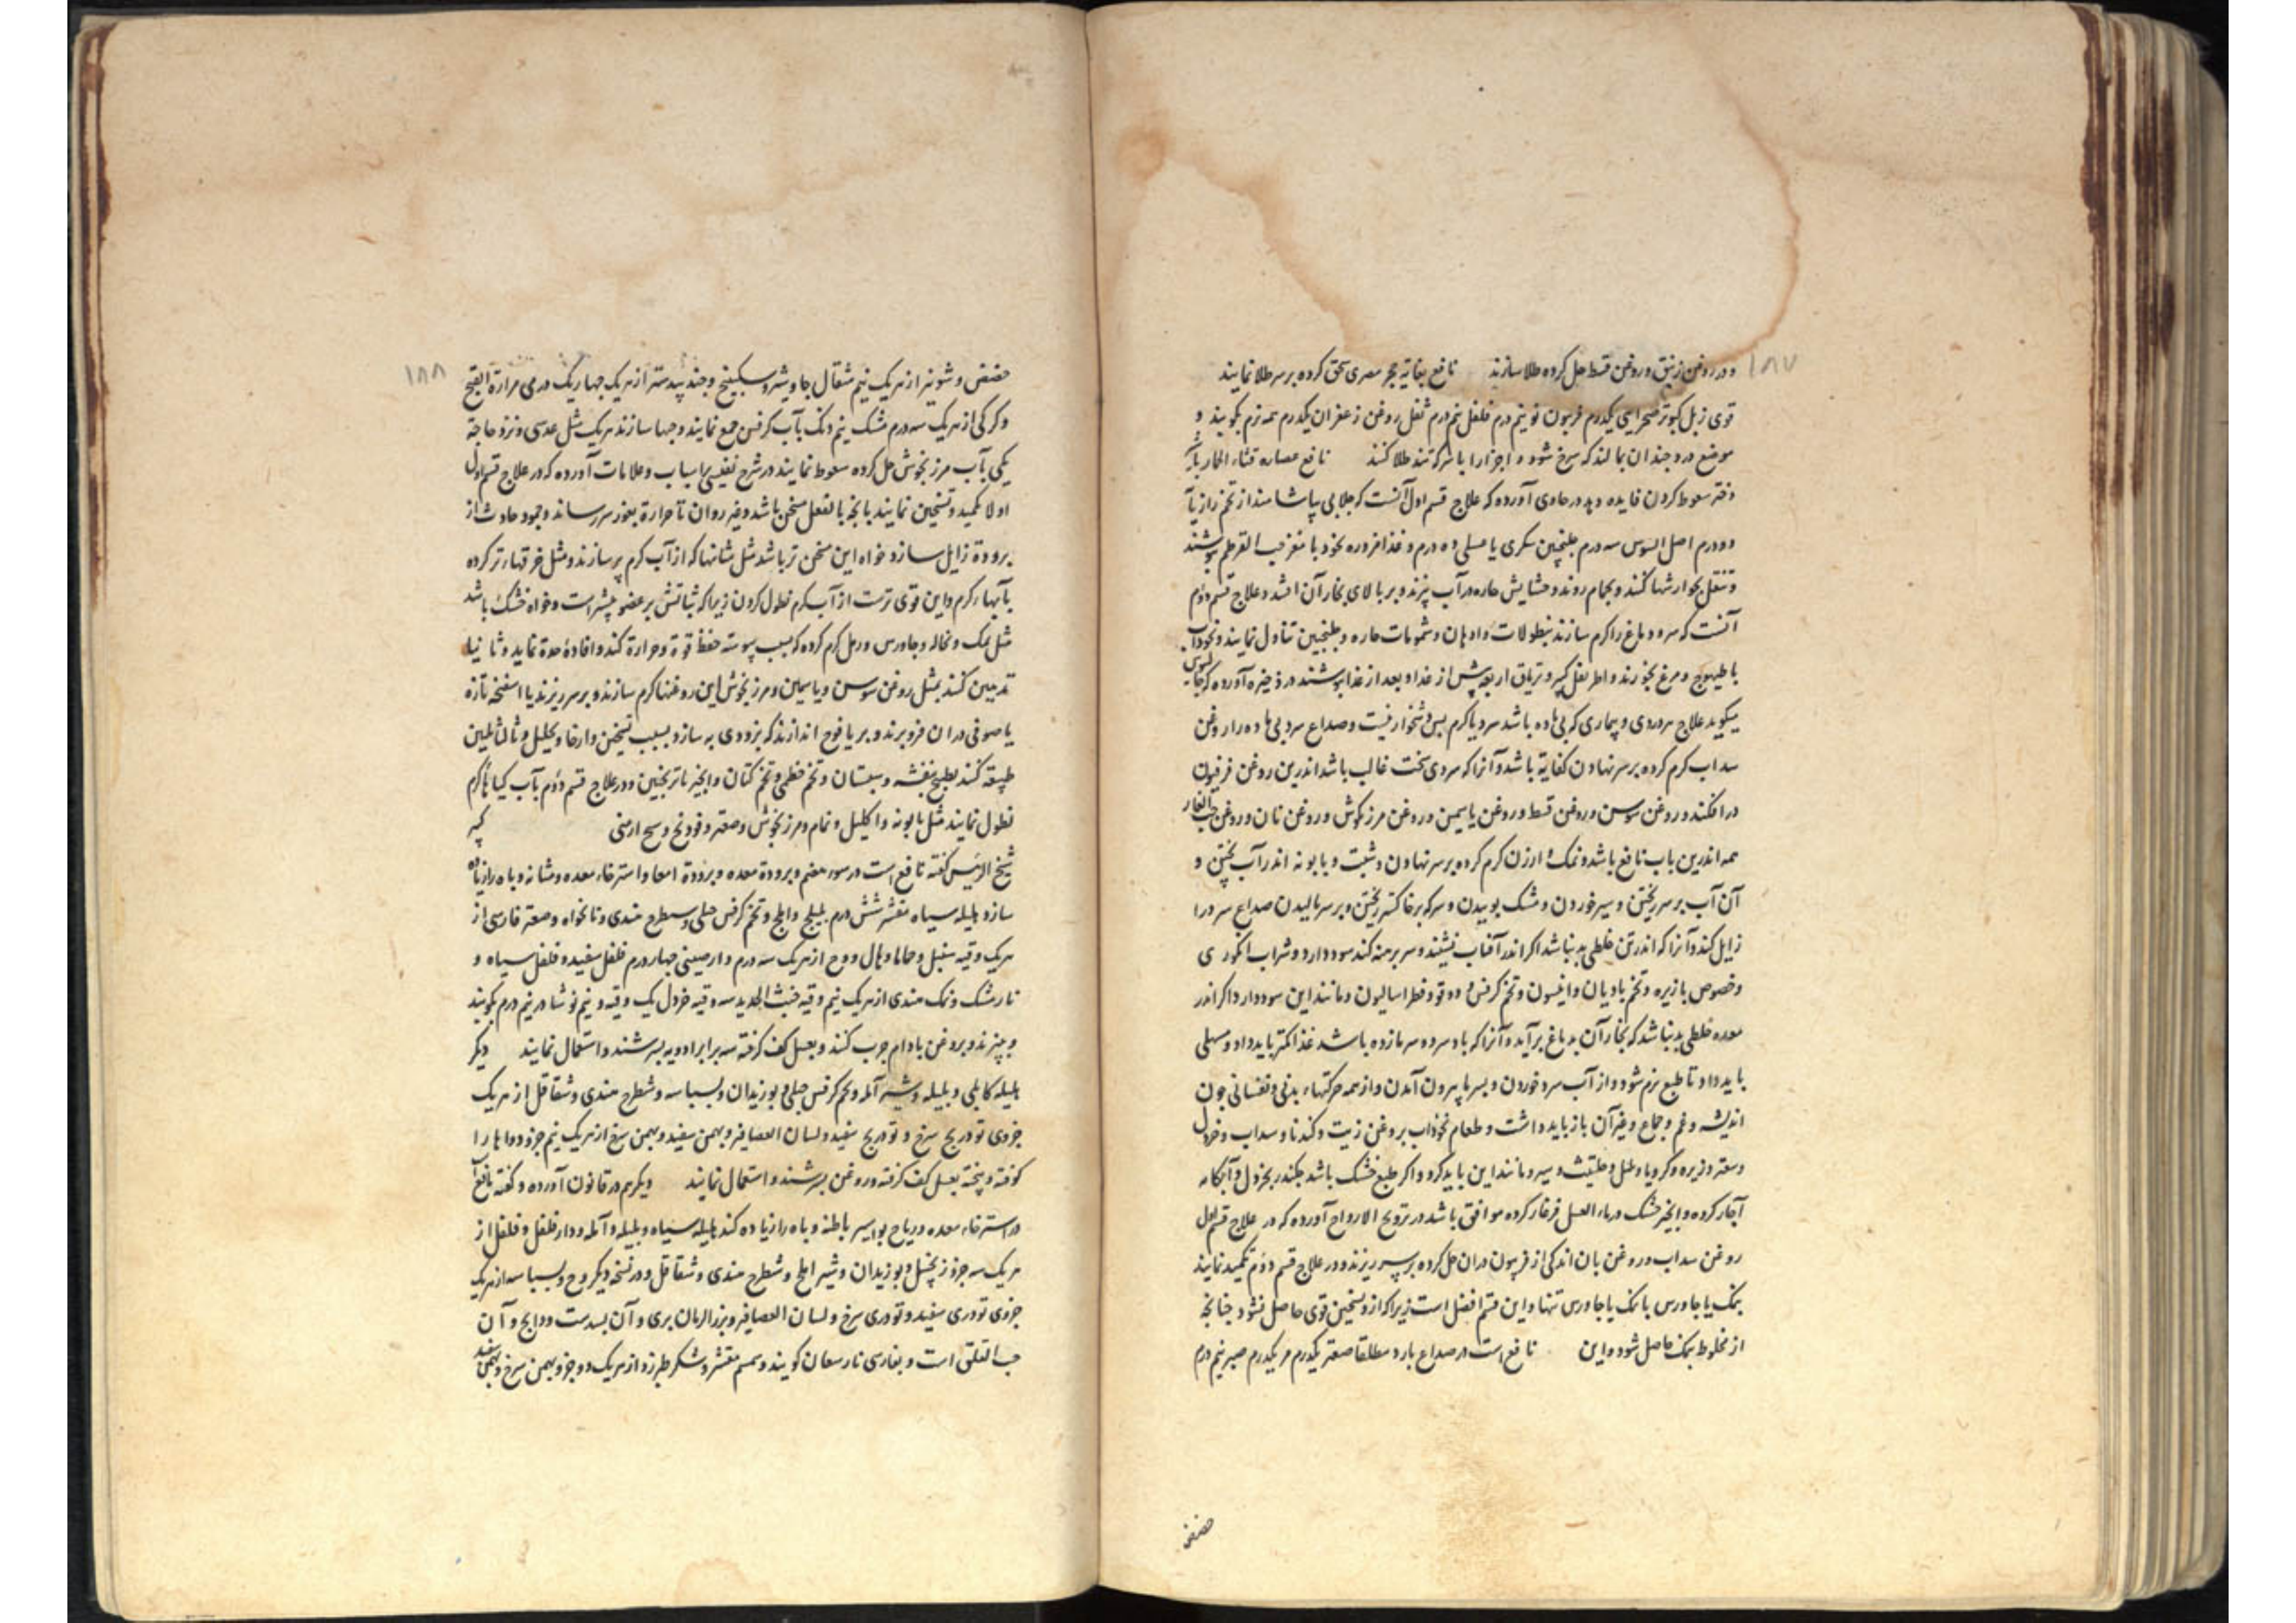 ۱۸۷
و در روغن زنبق و روغن قسط حل کرده طلا سازند نافع بغایة حجر مصری سحق کرده بر سر طلا نمایند
قوی زبل کبوتر صحرایی یکدرم فربیون نو نیم درم فلفل نیم درم ثفل روغن زعفران یکدرم همه نرم بکوبند و
موضع درد چندان بمالند که سرخ شود و اجزا را با سرکه تند طلا کنند نافع عصاره قثاء الحمار با
دفته سعوط کردن فایده دهد در حاوی آورده که علاج قسم اول آنست که جلابی بیاشامند از تخم رازیا
دو درم اصل السوس سه درم جلنجبین سکری یا عسلی ده درم و غذا مزوره نخود با مغز حب القرطم بنوشند
و تنقل بجوارشها کنند و بحمام روند و حشایش حاره در آب پزند و بر بالای بخار آن افتند و علاج قسم دوم
آنست که سر و دماغ را گرم سازند بنطولات و ادهان و شمومات حاره و جلنجبین تناول نمایند و نخوداب
با طیهوج و مرغ بخورند و اطریفل کبیر و تریاق اربعه پیش از غذا و بعد از غذا بنوشند در ذخیره آورده که جالینوس
میگوید علاج سردردی و بیماری که بی ماده باشد سرد یا گرم بس دشخوار نیست و صداع سرد بی ماده را روغن
سداب گرم کرده بر سر نهادن کفایة باشد و آنرا که سردی سخت غالب باشد اندرین روغن فرفیون
در افکنند و روغن سوسن و روغن قسط و روغن یاسمین و روغن مرزنکوش و روغن نان و روغن حب الغار
همه اندرین باب نافع باشد و نمک و ارزن گرم کرده بر سر نهادن و شبت و بابونه اندر آب پختن و
آن آب بر سر ریختن و سیر خوردن و مشک بوییدن و سرکه بر خاکستر ریختن و بر سر مالیدن صداع سرد را
زایل کند و آنرا که اندر تن خلطی بد نباشد اگر اندر آفتاب نشیند و سر برهنه کند سود دارد و شراب انگوری
و خصوص با زیره و تخم بادیان و انیسون و تخم کرفس و دوقو و فطراسالیون و مانند این سود دارد اگر اندر
معده خلطی بد نباشد که بخار آن بدماغ برآید و آنرا که باد سرد و سرما زده باشد غذا کمتر باید داد و مسهلی
باید داد تا طبع نرم شود و از آب سرد خوردن و بسرما بیرون آمدن و از همه حرکتهاء بدنی و نفسانی چون
اندیشه و غم و جماع و غیر آن باز باید داشت و طعام نخوداب بروغن زیت و کندنا و سداب و خردل
و سعتر و زیره و کرویا و فلفل و حلتیث و سیر و مانند این باید کرد و اگر طبع خشک باشد چکندر بخردل و آبکامه
آچار کرده و انجیر خشک در ماء العسل فرغار کرده موافق باشد در ترویح الارواح آورده که در علاج قسم اول
روغن سداب و روغن بان اندکی از فربیون در آن حل کرده بر سر ریزند و در علاج قسم دوم تکمید نمایند
بنمک یا جاورس با نمک یا جاورس تنها و این قسم افضل است زیرا که از و تسخین قوی حاصل نشود چنانچه
از مخلوط بنمک حاصل شود و این نافع است در صداع بارد مطلقا صعتر یکدرم مر یکدرم صبر نیم درم
حضض
۱۸۸
حضض و شونیز از هر یک نیم مثقال جاوشیر و سکبینج و جند بیدستر از هر یک چهار یک درمی مرارة القبج
و کرکی از هر یک سه درم مشک نیم دنک بآب کرفس جمع نمایند و حبها سازند هر یک مثل عدسی و نزد حاجة
یکی بآب مرزنجوش حل کرده سعوط نمایند در شرح نفیسی بر اسباب و علامات آورده که در علاج قسم اول
اولا تکمید و تسخین نمایند بانچه بالفعل مسخن باشد و غیر روان تا حرارة بغور سر رساند و جمود حادث از
برودة زایل سازد خواه این مسخن تر باشد مثل مثانها که از آب گرم پر سازند و مثل خرقهاء تر کرده
بآبهاء گرم و این قوی ترست از آب گرم نطول کردن زیرا که ثباتش بر عضو بیشتر است و خواه خشک باشد
مثل نمک و نخاله و جاورس و رمل گرم کرده که بسبب یبوسة حفظ قوة و حرارة کند و افاده حدة نماید و ثانیا
تدهین کنند بمثل روغن سوسن و یاسمین و مرزنجوش این روغنها گرم سازند و بر سر ریزند یا اسفنجه تازه
یا صوفی در آن فرو برند و بر یافوخ اندازند که بزودی به سازد بسبب تسخین و ارخا و تحلیل و ثالثا تلیین
طبیعة کنند بطبیخ بنفشه و سبستان و تخم خطمی و تخم کتان و انجیر با ترنجبین و در علاج قسم دوم بآب کیاهاء گرم
نطول نمایند مثل بابونه و اکلیل و نمام و مرزنجوش و صعتر و فودنج و شیح ارمنی کبیر
شیخ الرئیس گفته نافع است در سوء هضم و برودة معده و برودة امعا و استرخاء معده و مثانه و باه را زیاده
سازد هلیله سیاه مقشر شش درم بلیلج و املج و تخم کرفس جبلی و شیطرج هندی و نانخواه و صعتر فارسی از
هر یک وقیه سنبل و حاما و هال و وج از هر یک سه درم دارصینی چهار درم فلفل سفید و فلفل سیاه و
نارمشک و نمک هندی از هر یک نیم وقیه خبث الحدید سه وقیه خردل یک وقیه و نیم نوشادر نیم درم بکوبند
و ببیزند و بروغن بادام چرب کنند و بعسل کف گرفته سه برابر ادویه بسرشند و استعمال نمایند دیگر
هلیله کابلی و بلیله و شیر آمله و تخم کرفس جبلی و بوزیدان و بسباسه و شیطرج هندی و شقاقل از هر یک
جزوی تودریج سرخ و تودریج سفید و لسان العصافیر و بهمن سفید و بهمن سرخ از هر یک نیم جزو دواها را
کوفته و پخته بعسل کف گرفته و روغن بسرشند و استعمال نمایند دیگر هم در قانون آورده و گفته نافع
در استرخاء معده و ریاح بواسیر باطنه و باه را زیاده کند هلیله سیاه و بلیله و آمله و دارفلفل و فلفل از
هر یک سه جزو زنجبیل و بوزیدان و شیر املج و شیطرج هندی و شقاقل و در نسخه دیگر وج و بسباسه از هر یک
جزوی تودری سفید و تودری سرخ و لسان العصافیر و بزر الرمان بری و آن بسدست و دابج و آن
حب القلقل است و بفارسی ناردان کویند و سمسم مقشر و شکر طبرزد از هر یک دو جزو بهمن سرخ و بهمن سفید